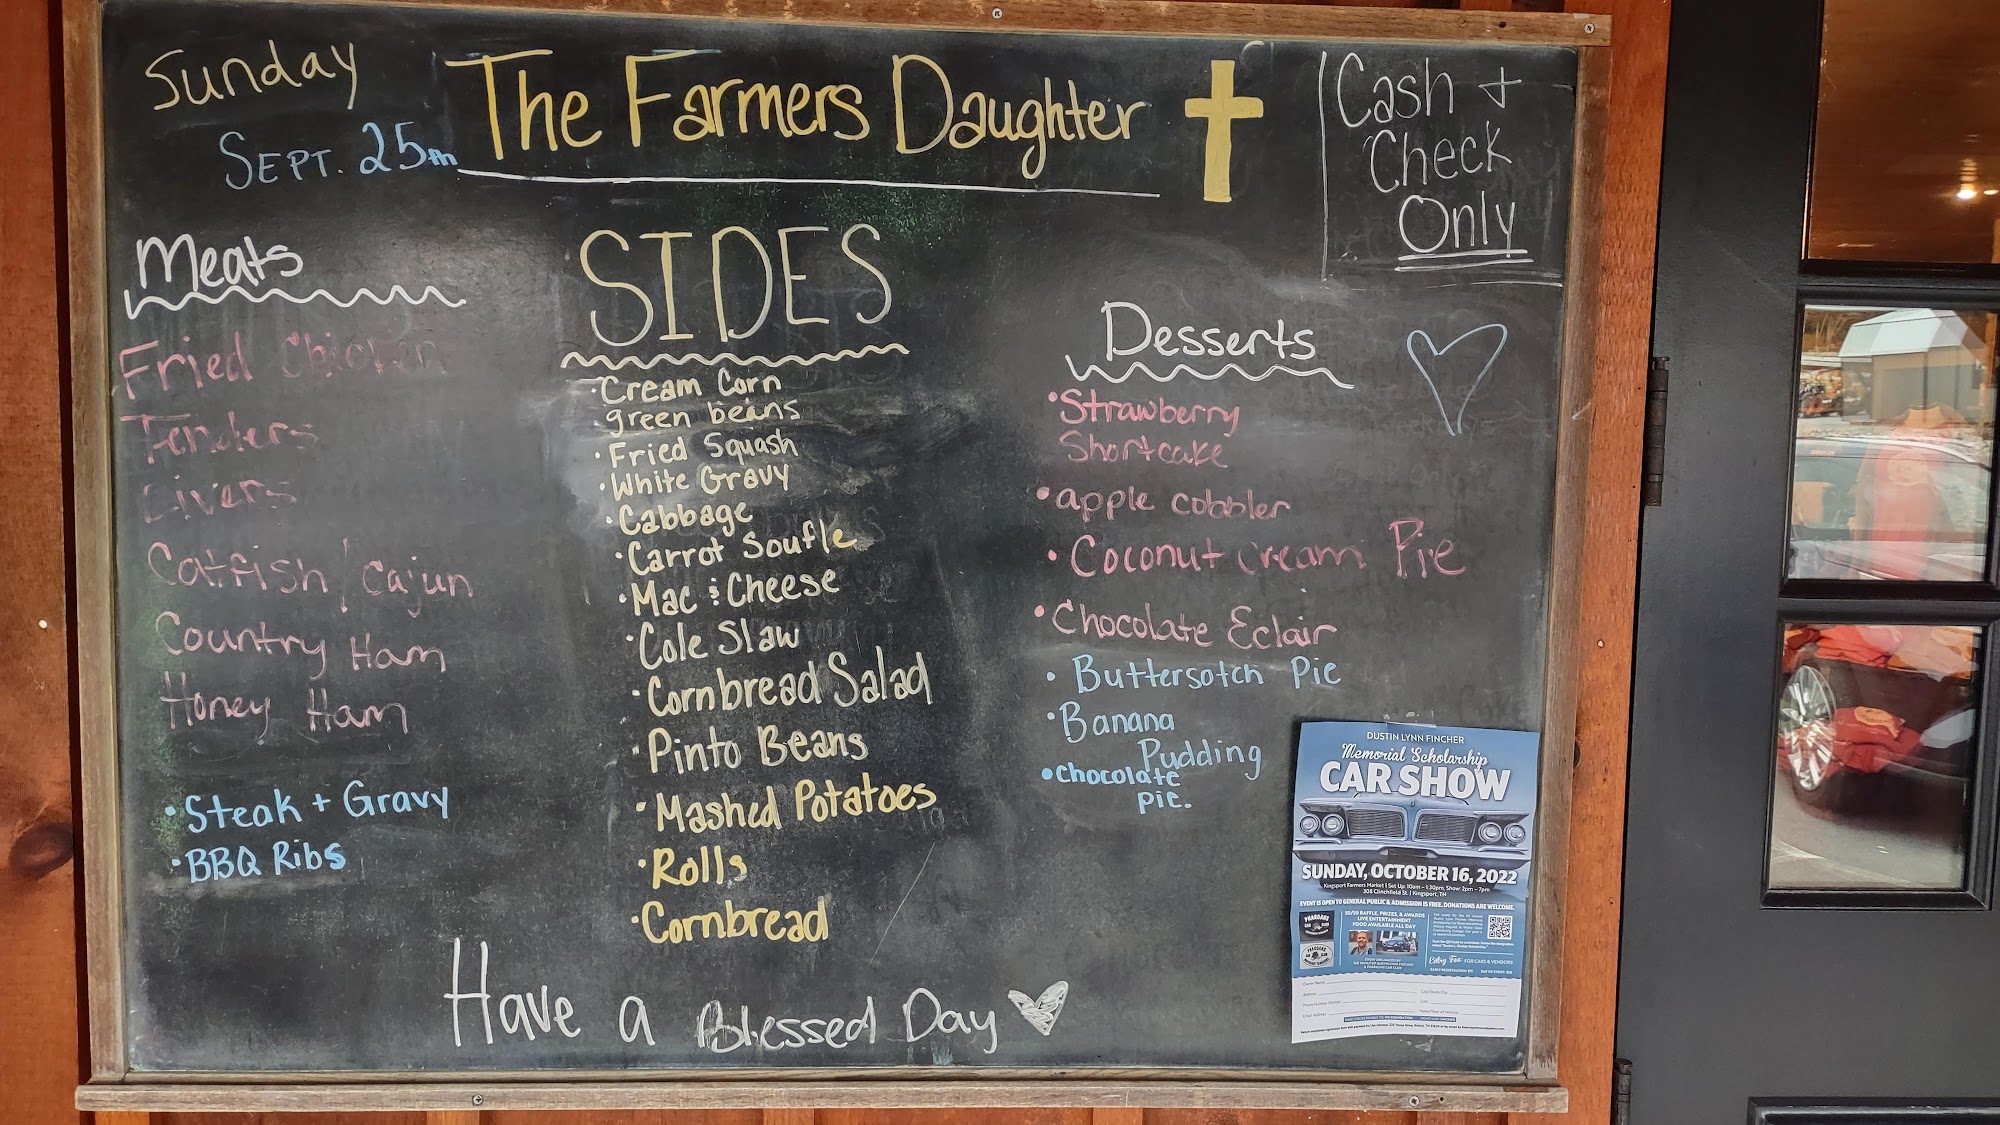 Sunday
SEPT. 25th
The Farmers Daughter
Cash +
Check
Only
Meats
Fried Chicken
Tenders
Livers
Catfish / Cajun
Country Ham
Honey Ham
• Steak + Gravy
• BBQ Ribs
SIDES
• Cream Corn
• green beans
• Fried Squash
• White Gravy
• Cabbage
• Carrot Soufle
• Mac & Cheese
• Cole Slaw
• Cornbread Salad
• Pinto Beans
• Mashed Potatoes
• Rolls
• Cornbread
Desserts
• Strawberry
Shortcake
• apple cobbler
• Coconut Cream Pie
• Chocolate Eclair
• Buttersotch Pie
• Banana
Pudding
• Chocolate
pie.
Have a Blessed Day
DUSTIN LYNN FINCHER
Memorial Scholarship
CAR SHOW
SUNDAY, OCTOBER 16, 2022
Kingsport Farmers Market | Set Up: 10am – 1:30pm, Show: 2pm – 7pm
308 Clinchfield St. | Kingsport, TN
EVENT IS OPEN TO GENERAL PUBLIC & ADMISSION IS FREE. DONATIONS ARE WELCOME.
50/50 RAFFLE, PRIZES, & AWARDS
LIVE ENTERTAINMENT
FOOD AVAILABLE ALL DAY
Entry Fee FOR CARS & VENDORS